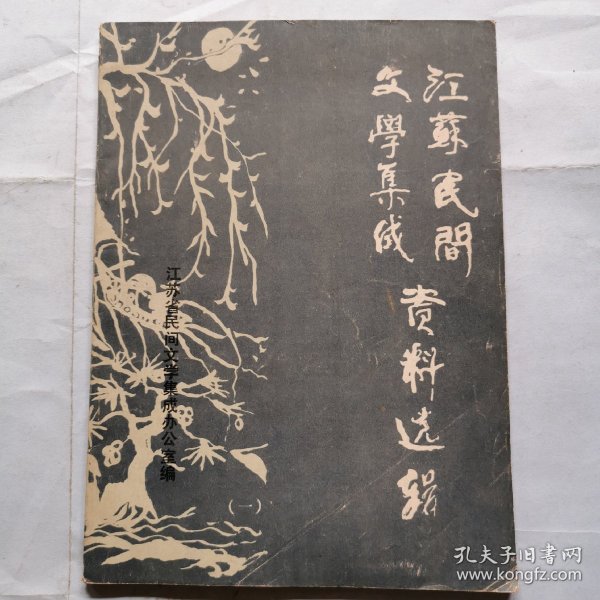 江蘇民間
文學集成
资料选辑
(一)
江苏省民间文学集成办公室编
孔夫子旧书网
www.kongfz.com